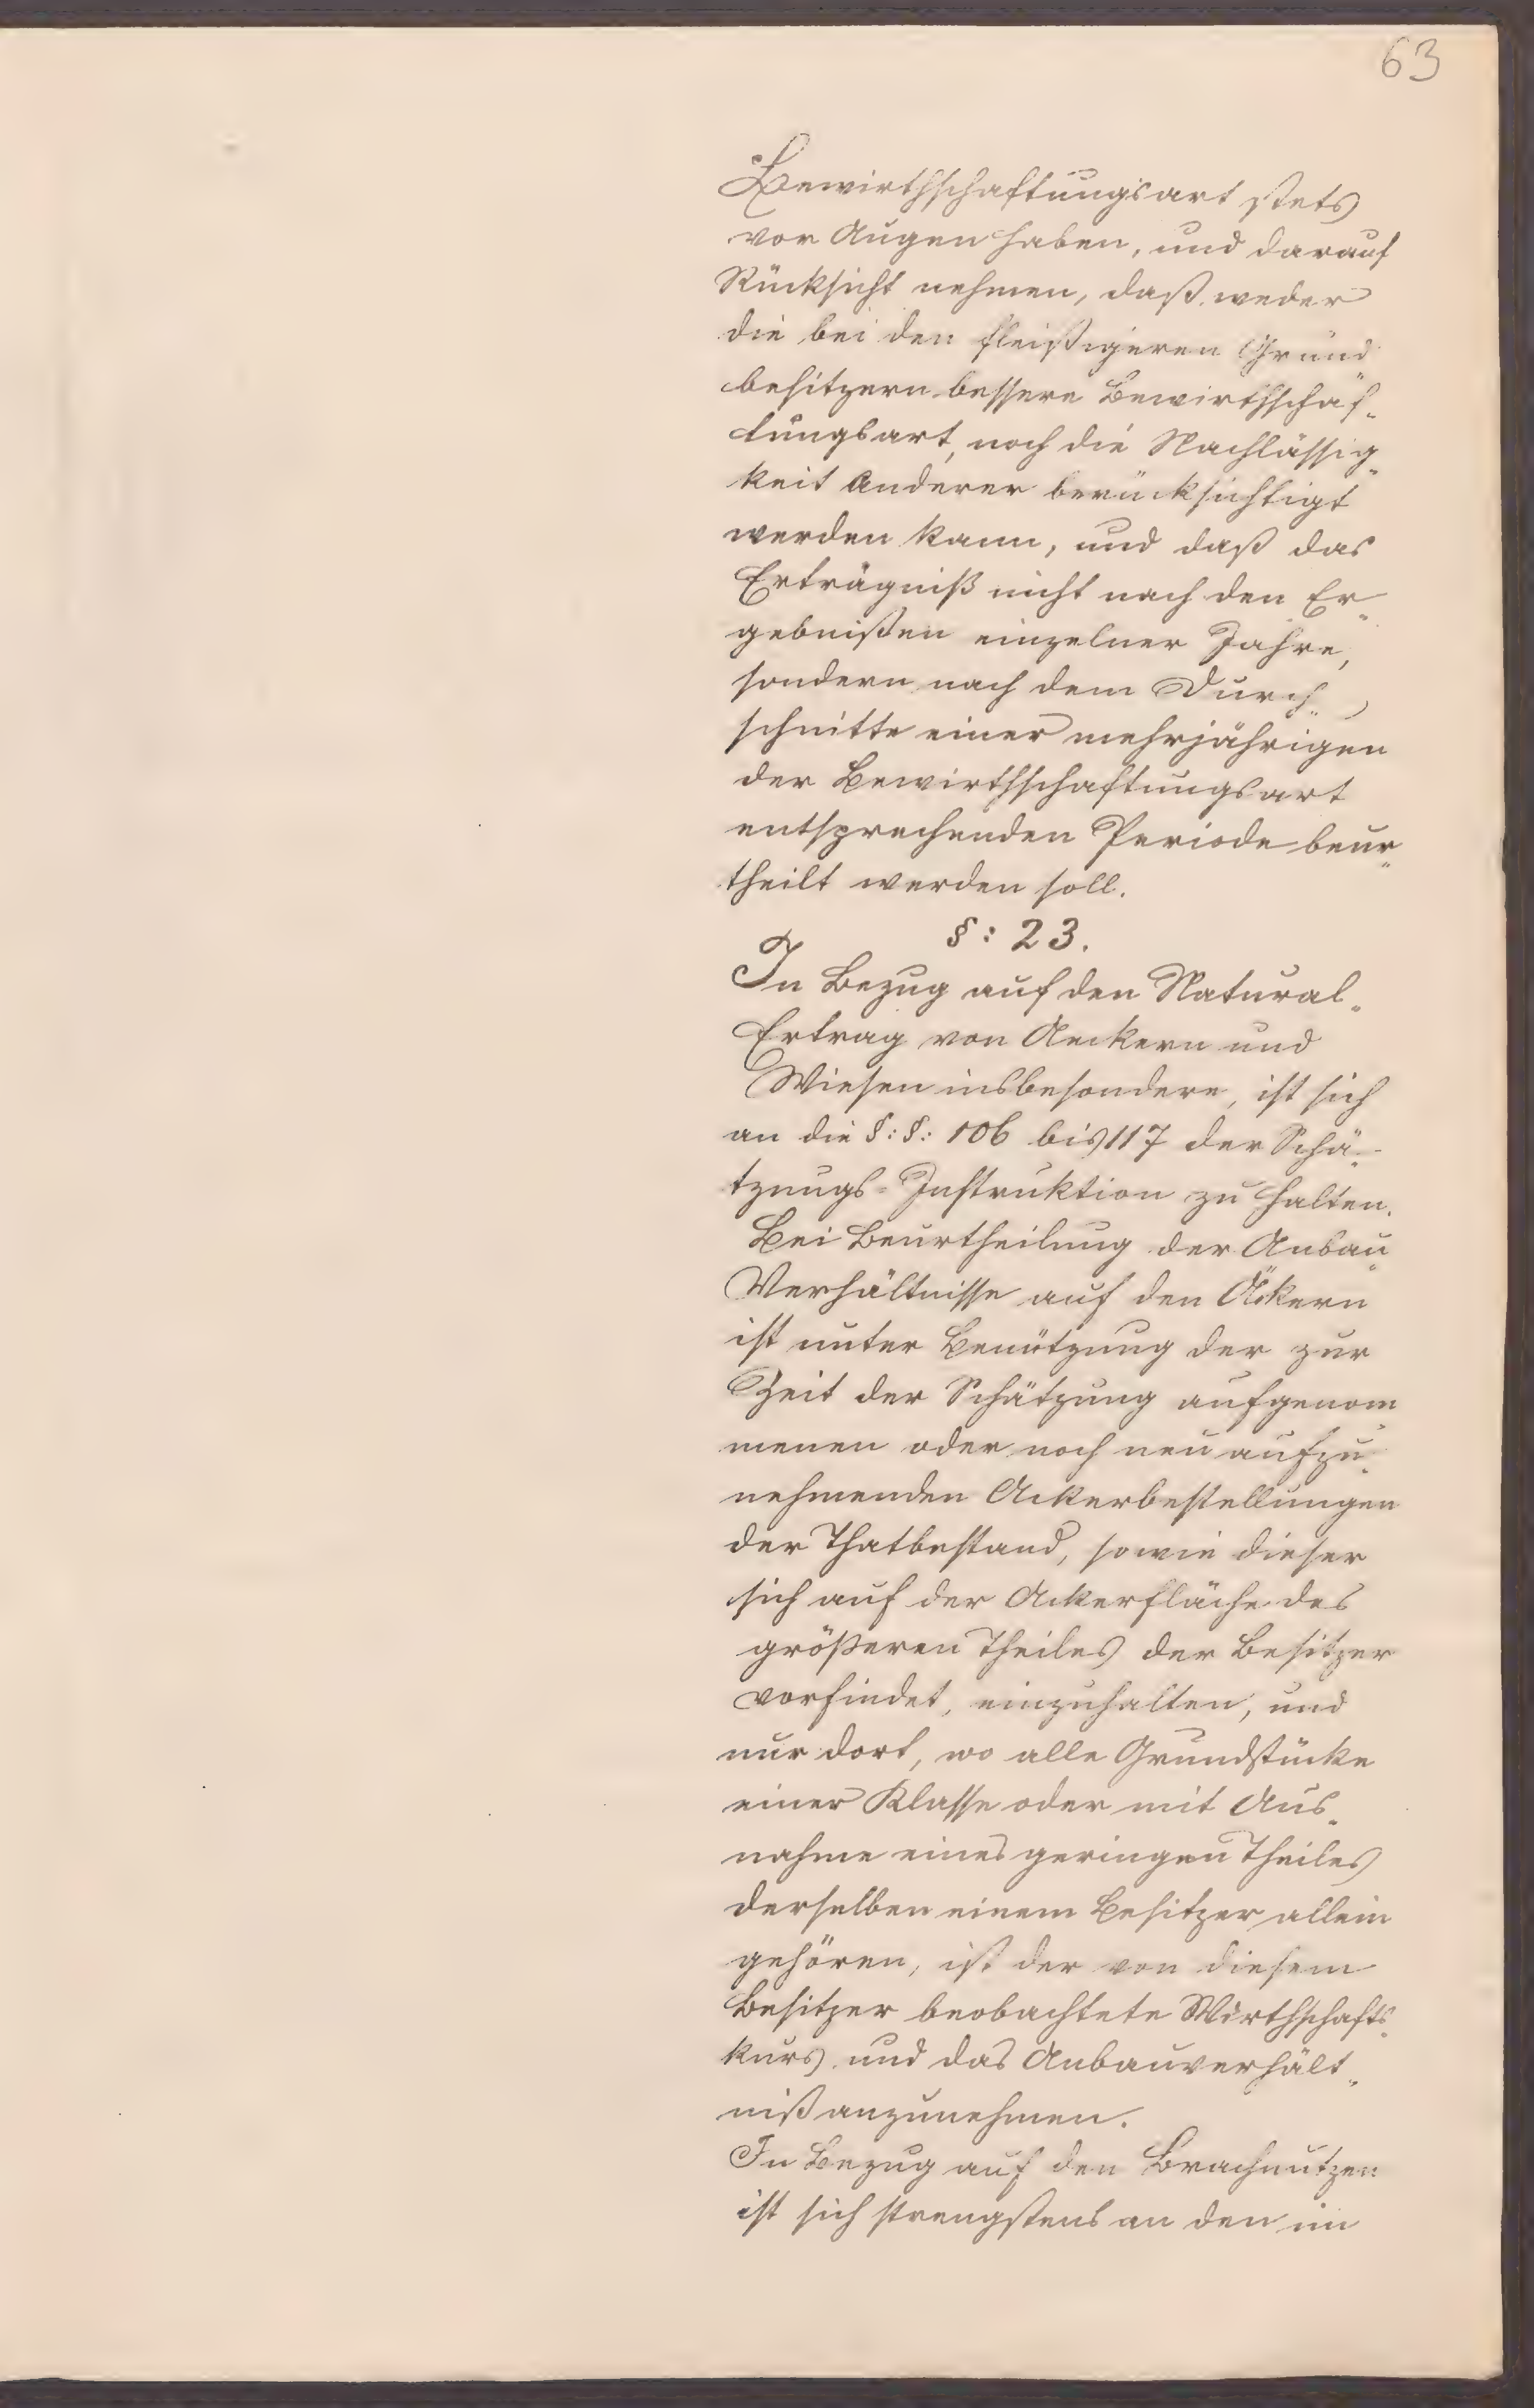 63
Bewirthschaftungsart stets
vor Augen haben, und darauf
Rücksicht nehmen, daß weder
die bei den fleißigeren Grund
besitzern bessere Bewirthschaf„
tungsart, noch die Nachlässig„
keit Anderer berücksichtigt
werden kann, und daß das
Erträgniß nicht nach den Er„
gebnißen einzelner Jahre,
sondern nach dem Durch„
schnitte einer mehrjährigen
der Bewirthschaftungsart
entsprechenden Periode beur„
theilt werden soll.
§: 23.
In Bezug auf den Natural„
Ertrag von Aeckern und
Wiesen insbesondere, ist sich
an die §:§: 106 bis 117 der Schä„
tzungs-Instruktion zu halten.
Bei Beurtheilung der Anbau„
Verhältnisse auf den Äckern
ist unter Benützung der zur
Zeit der Schätzung aufgenom„
menen oder noch neu aufzu„
nehmenden Ackerbestellungen
der Thatbestand, sowie dieser
sich auf der Ackerfläche des
größeren Theiles der Besitzer
vorfindet, einzuhalten, und
nur dort, wo alle Grundstücke
einer Klasse oder mit Aus„
nahme eines geringen Theiles
derselben einem Besitzer allein
gehören, ist der von diesem
Besitzer beobachtete Wirthschafts„
kurs und das Anbauverhält„
niß anzunehmen.
In Bezug auf den Brachnutzen
ist sich strengstens an den im